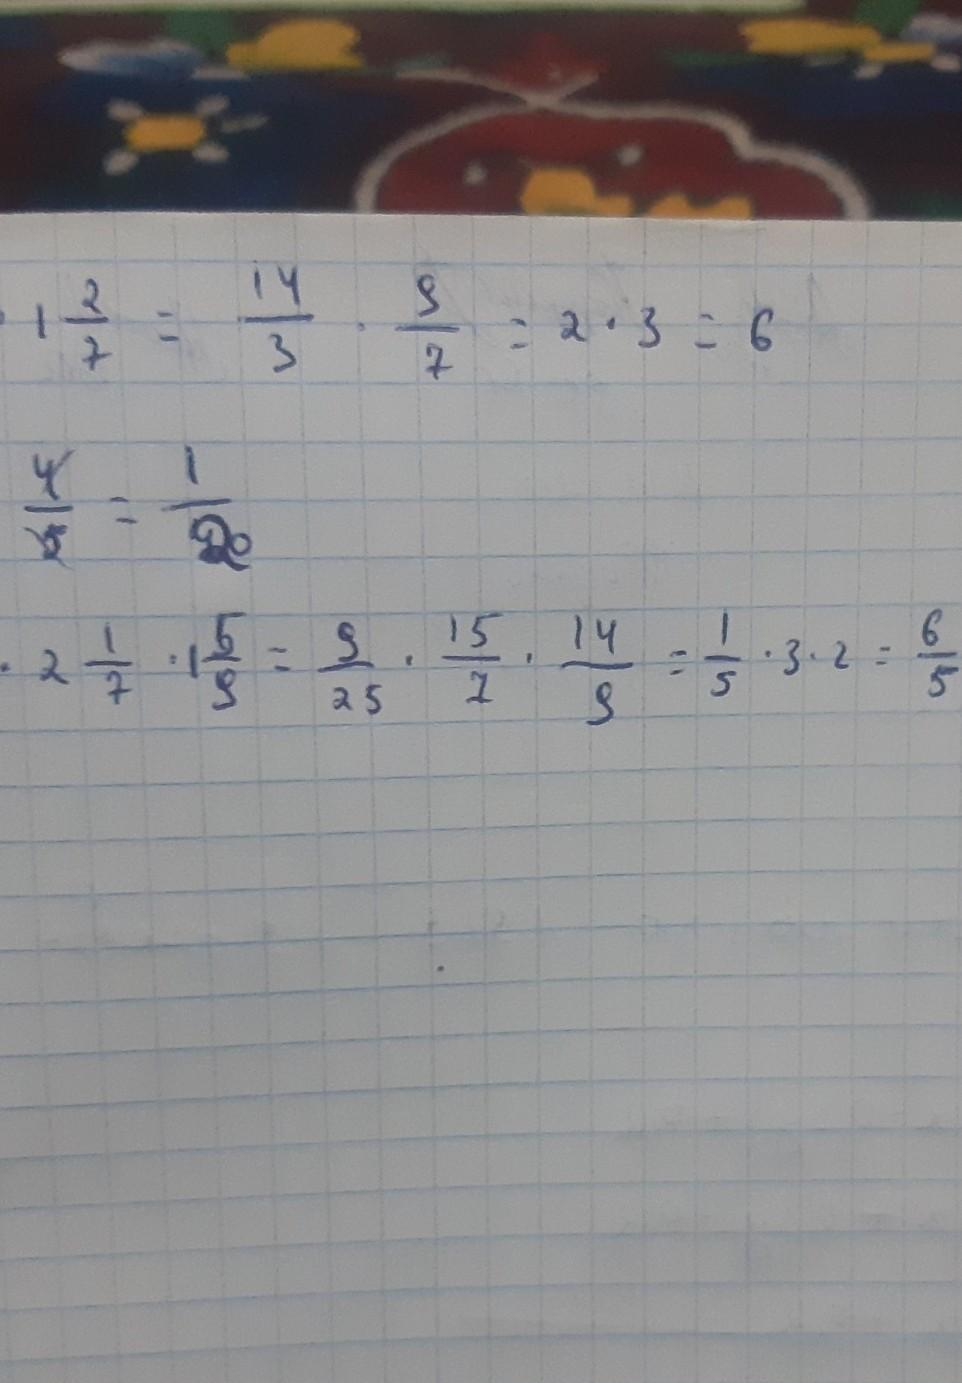 · 1 2/7 = 14/3 · 9/7 = 2 · 3 = 6
4/5 = 1/20
· 2 1/7 · 1 5/9 = 9/25 · 15/7 · 14/9 = 1/5 · 3 · 2 = 6/5